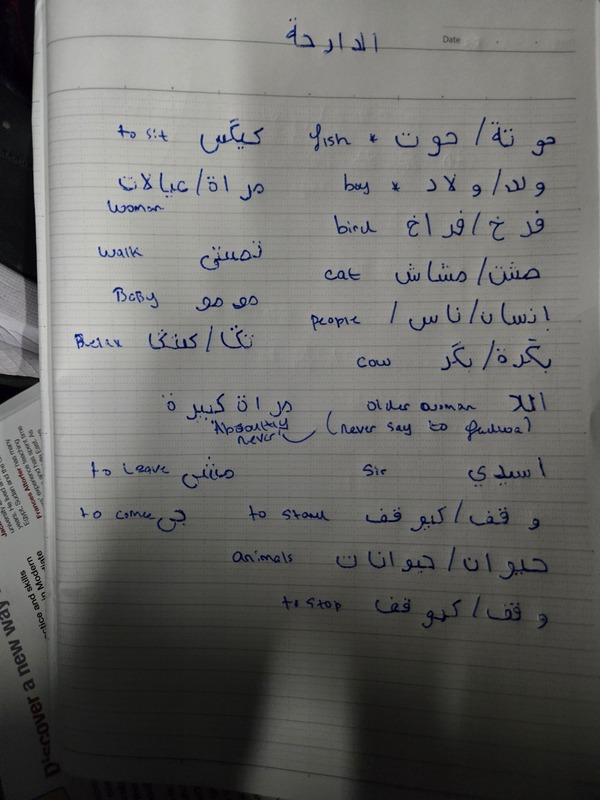 الدارجة
Date
حوتة / حوت * fish كيگلس to sit
ولد / ولاد * boy مراة / عيالات woman
فرخ / فراخ bird
تمشى walk
مش / مشاش cat
مومو Baby
انسان / ناس / people
تكا / كيتكا Relax
بگرة / بگر cow
اللا older woman مراة كبيرة
(never say to fadwa) Absoultly never!
اسيدي Sir مشى to leave
وقف / كيوقف to stand جى to come
حيوان / حيوانات animals
وقف / كيوقف to stop
Discover a new way